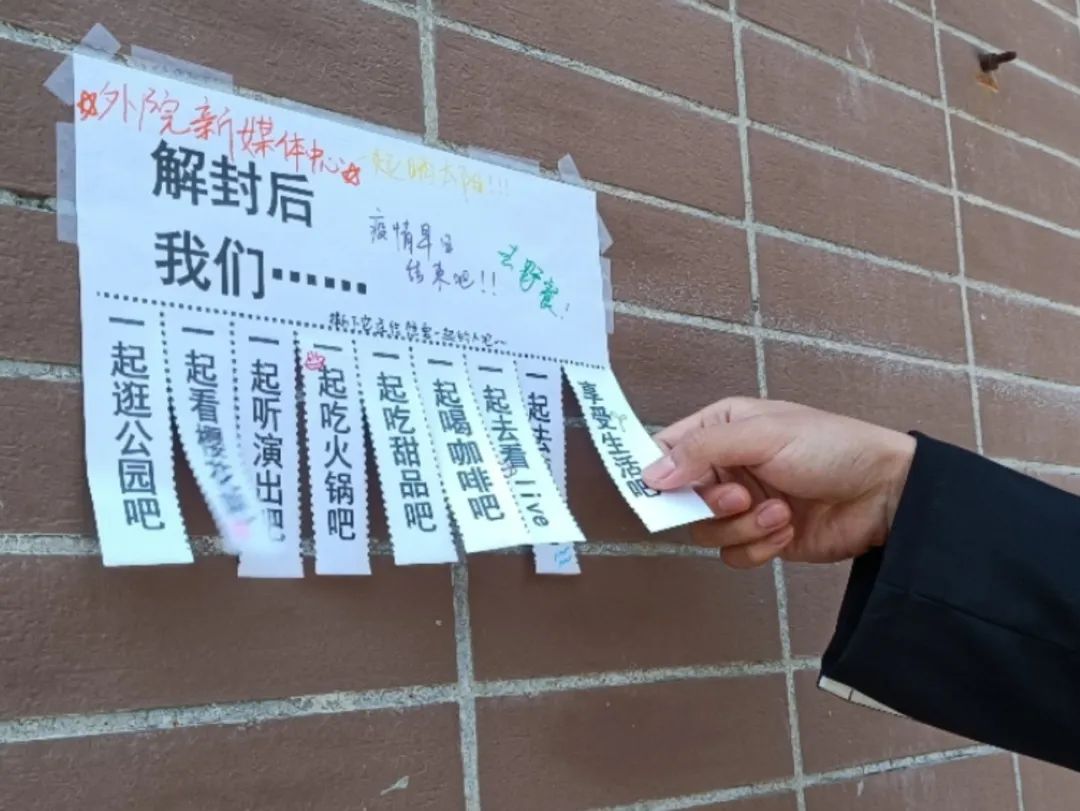 外院新媒体中心
一起晒太阳!!!
解封后
我们……
疫情早日
结束吧!!
去野餐!
一起逛公园吧
一起看樱花
一起听演出吧
一起吃火锅吧
一起吃甜品吧
一起喝咖啡吧
一起去看live
一起去
享受生活吧